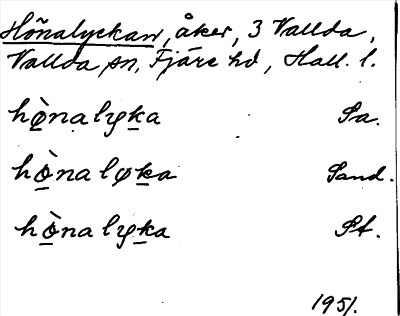 Hönalyckan, åker, 3 Vallda,
Vallda sn, Fjäre hd, Hall. l.
hò̱nalyḵa Sa.
hò̱naløḵa Sand.
hò̱nalyḵa St.
1951.